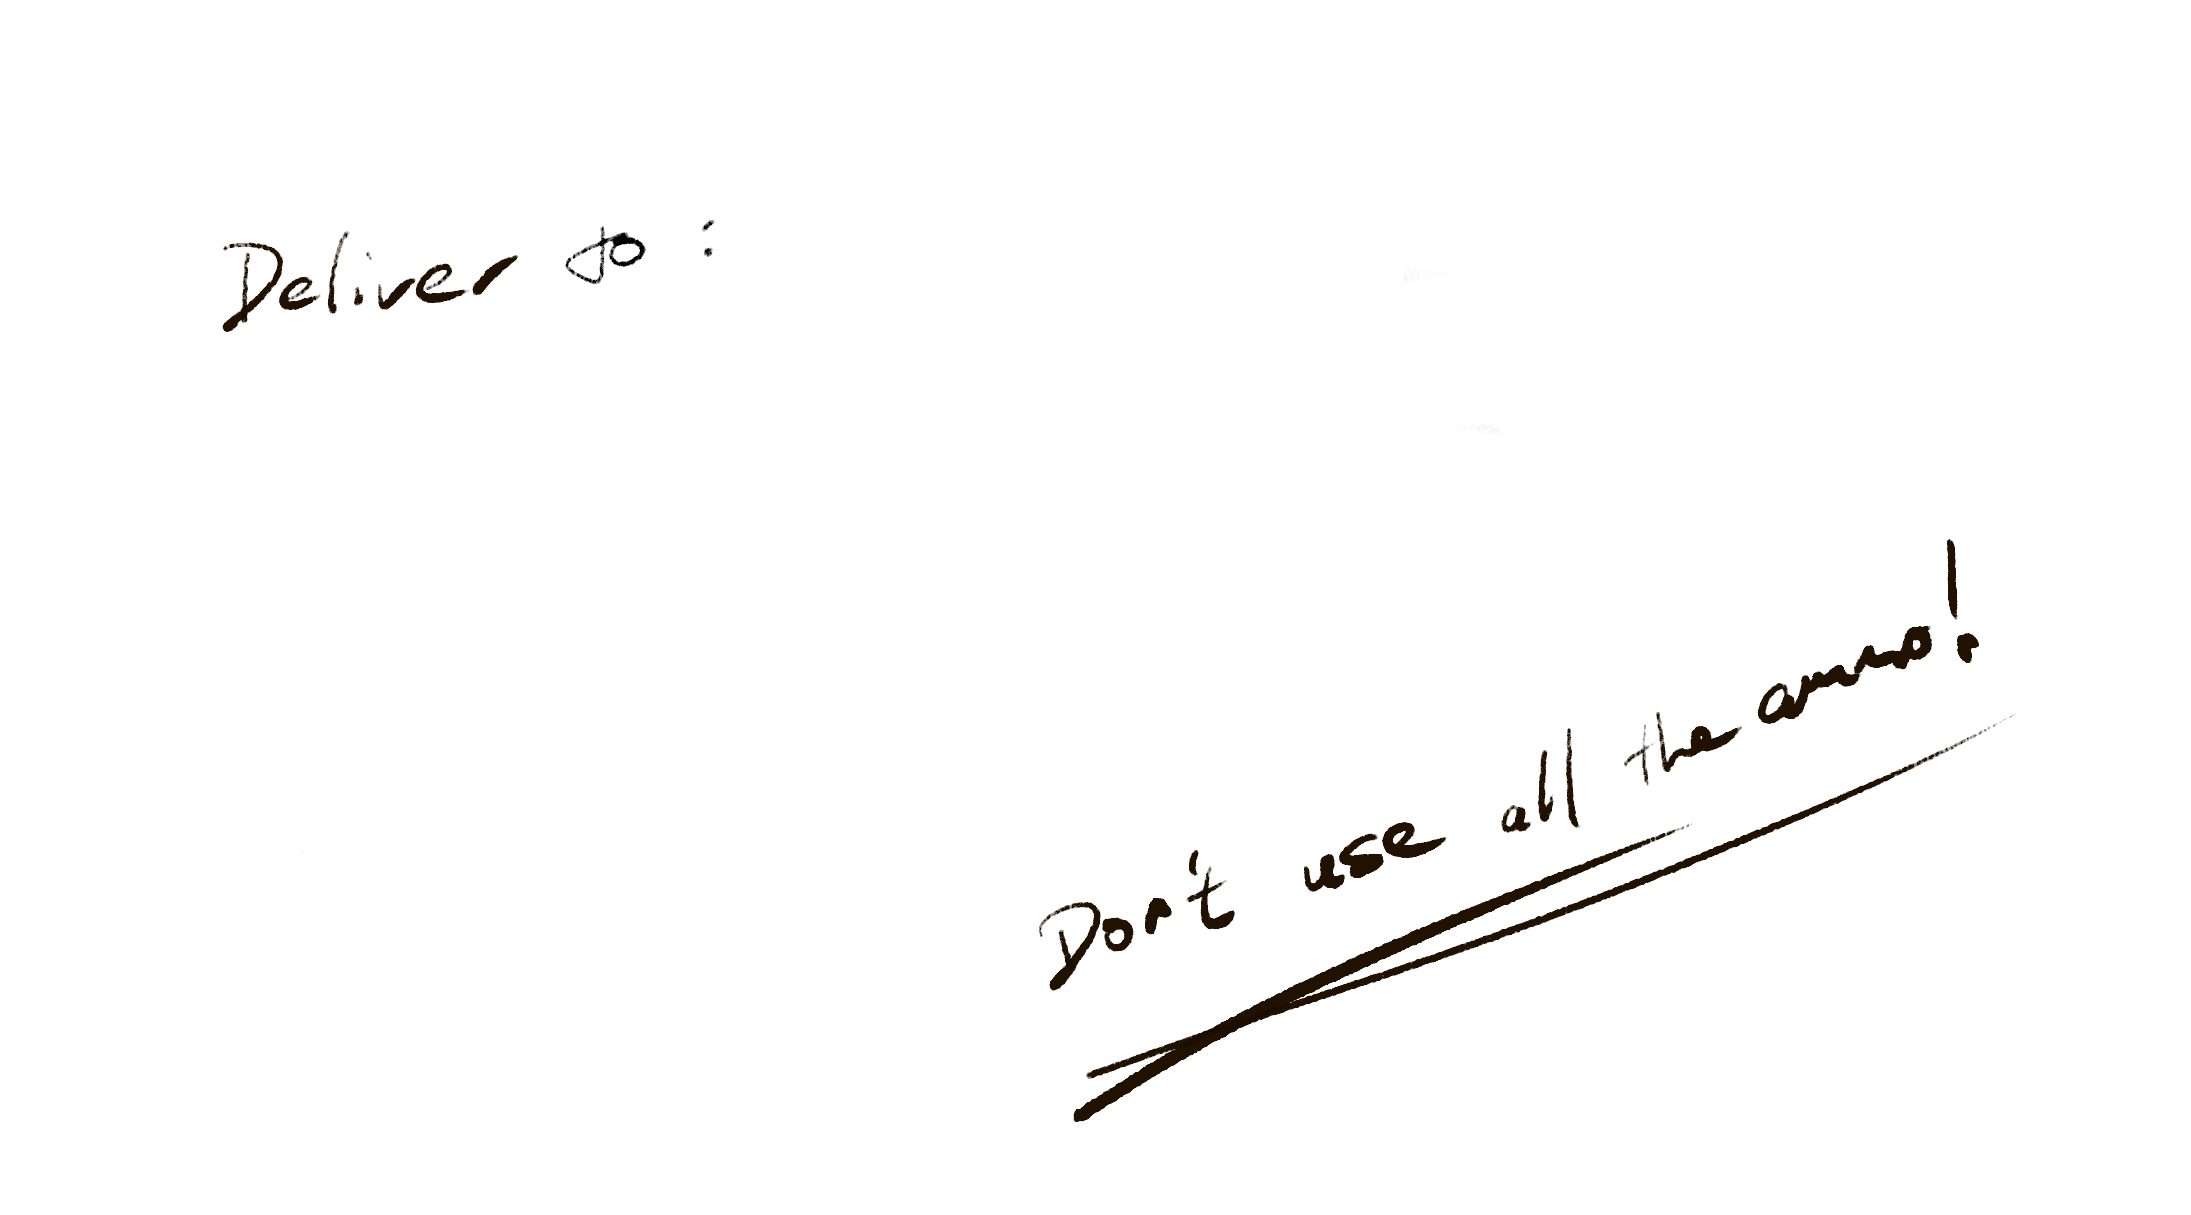 Deliver to :
Don't use all the ammo!